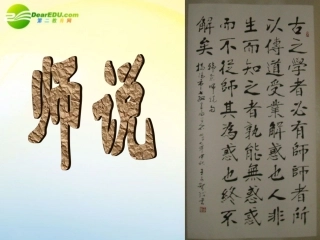 DearEDU.com
第二教育网
师说
古之學者必有師師者所
以傳道受業解惑也人非
生而知之者孰能無惑惑
而不從師其為惑也終不
解矣